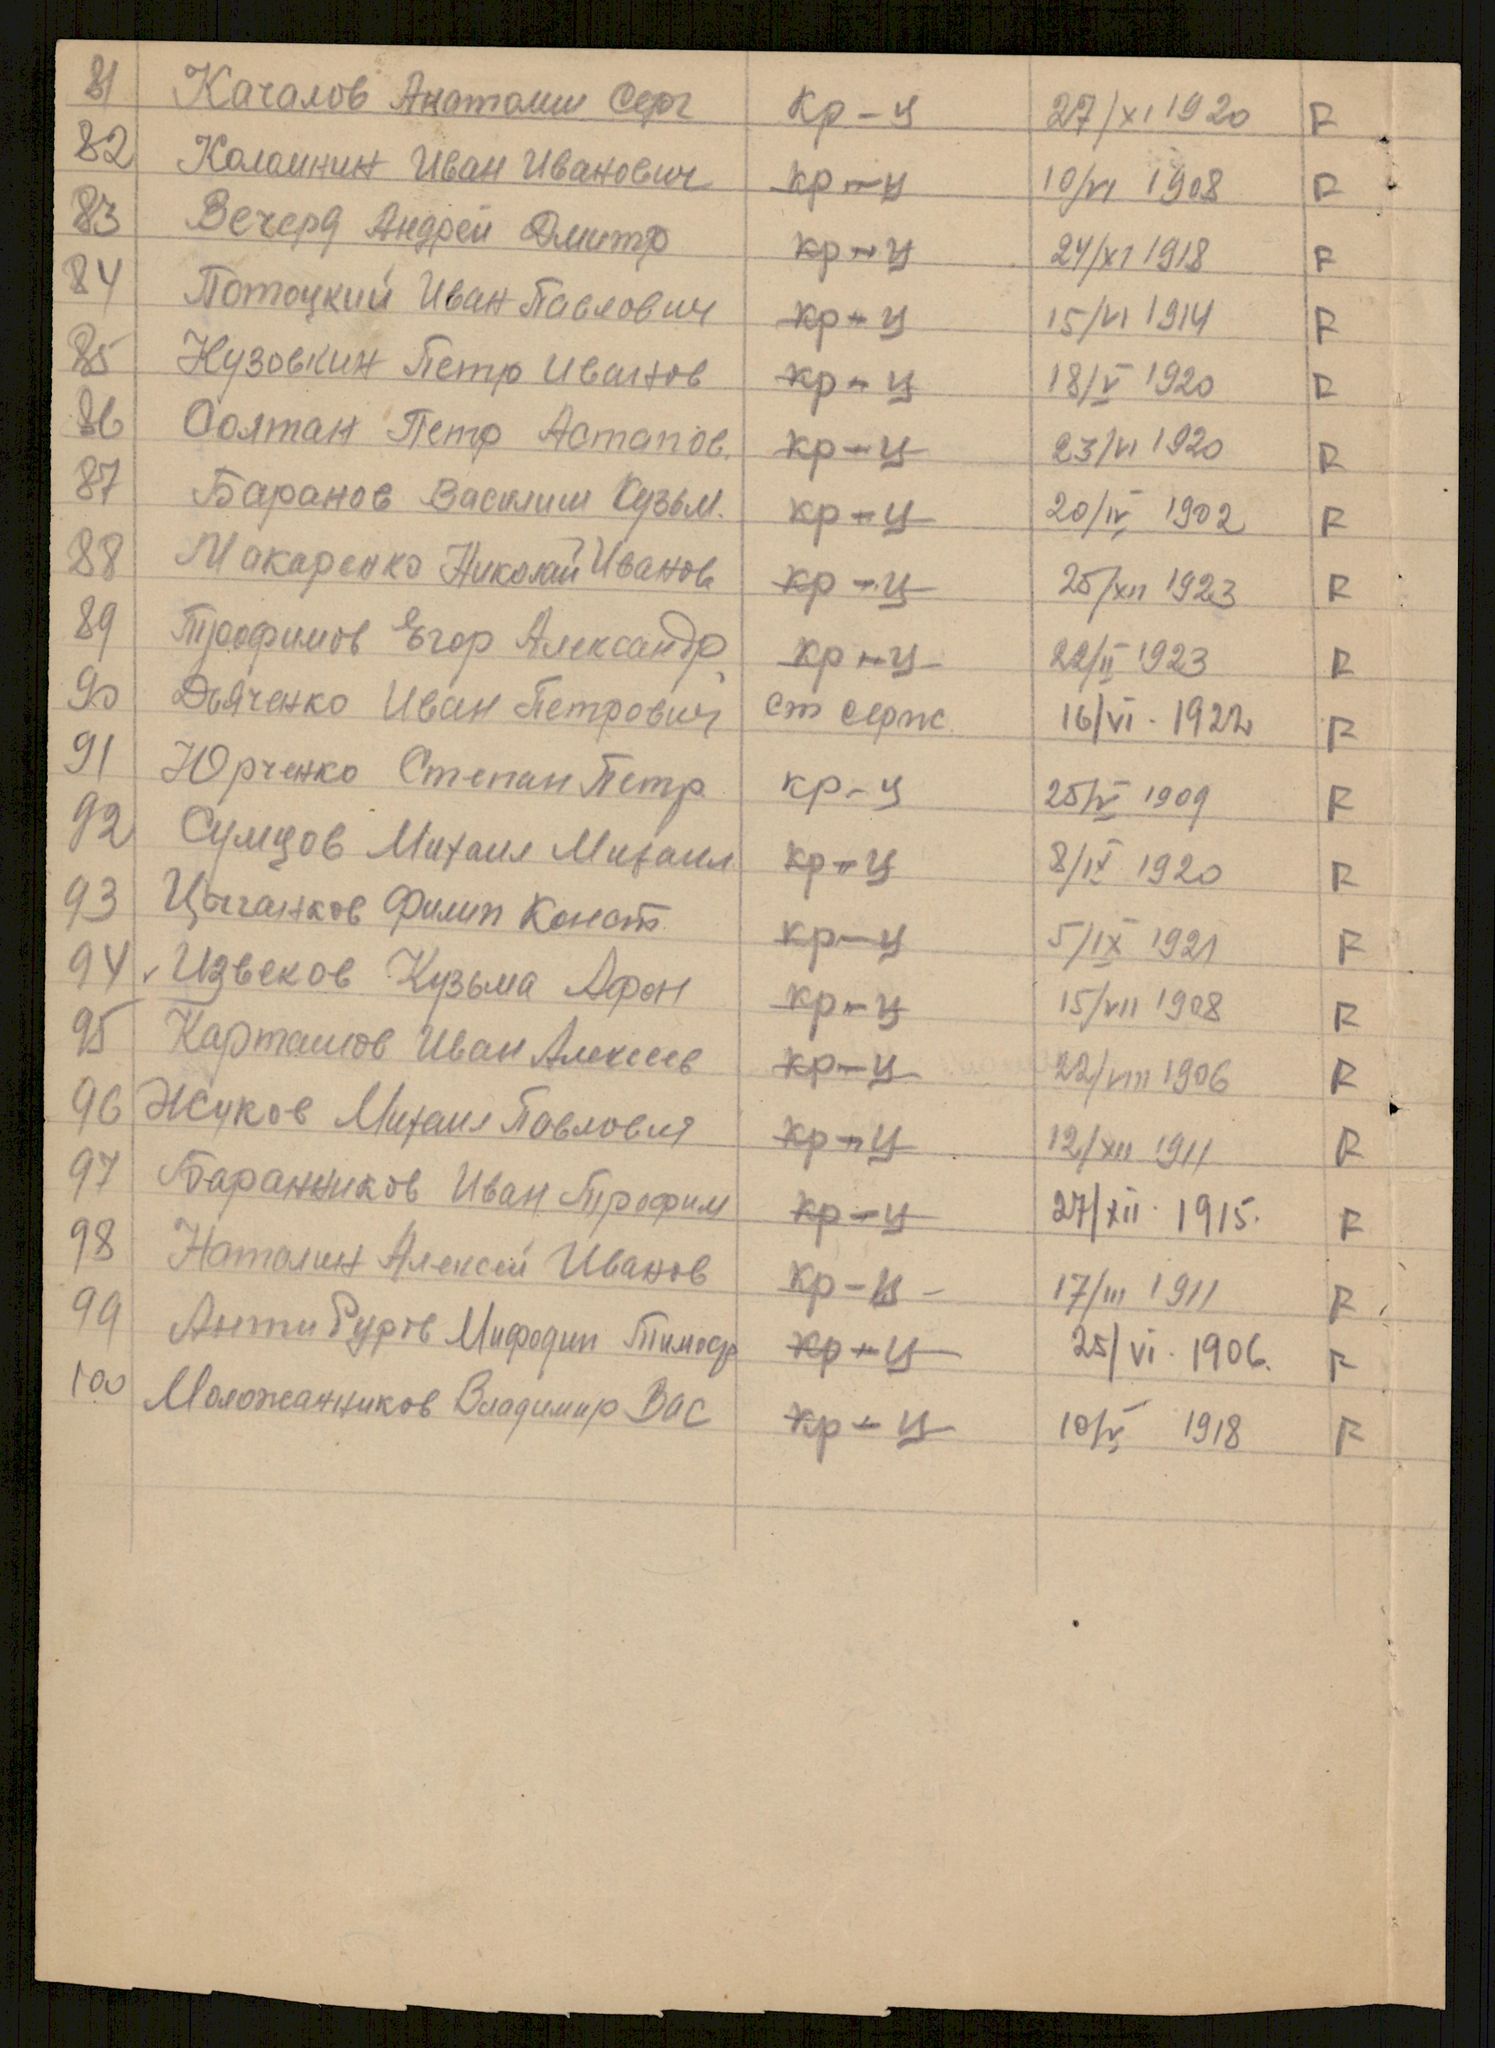 81 Качалов Анатолии Серг кр-ц 27/XI 1920 R
82 Коломнин Иван Иванович кр-ц 10/VI 1908 R
83 Вечеря Андрей Дмитр кр-ц 24/XI 1918 R
84 Потоцкий Иван Павлович кр-ц 15/VI 1914 R
85 Нузовкин Петр Иванов кр-ц 18/V 1920 R
86 Солтан Петр Астапов. кр-ц 23/VI 1920 R
87 Баранов Василии Кузьм. кр-ц 20/IV 1902 R
88 Макаренко Николай Иванов кр-ц 25/XII 1923 R
89 Трофимов Егор Александр кр-ц 22/II 1923 R
90 Дьяченко Иван Петрович ст серж. 16/VI. 1922 R
91 Юрченко Степан Петр. кр-ц 25/V 1909 R
92 Сумцов Михаил Михаил кр-ц 8/IX 1920 R
93 Цыганков Филип Конст. кр-ц 5/IX 1921 R
94 Извеков Кузьма Афон кр-ц 15/VII 1908 R
95 Карташов Иван Алексеев кр-ц 22/VIII 1906 R
96 Жуков Михаил Павлович кр-ц 12/XII 1911 R
97 Баранников Иван Трофим кр-ц 27/XII. 1915. R
98 Наталин Алексей Иванов кр-ц 17/III 1911 R
99 Мифодии Тимоф кр-ц 25/VI. 1906. R
100 Моложанников Владимир Вас кр-ц 10/V 1918 R